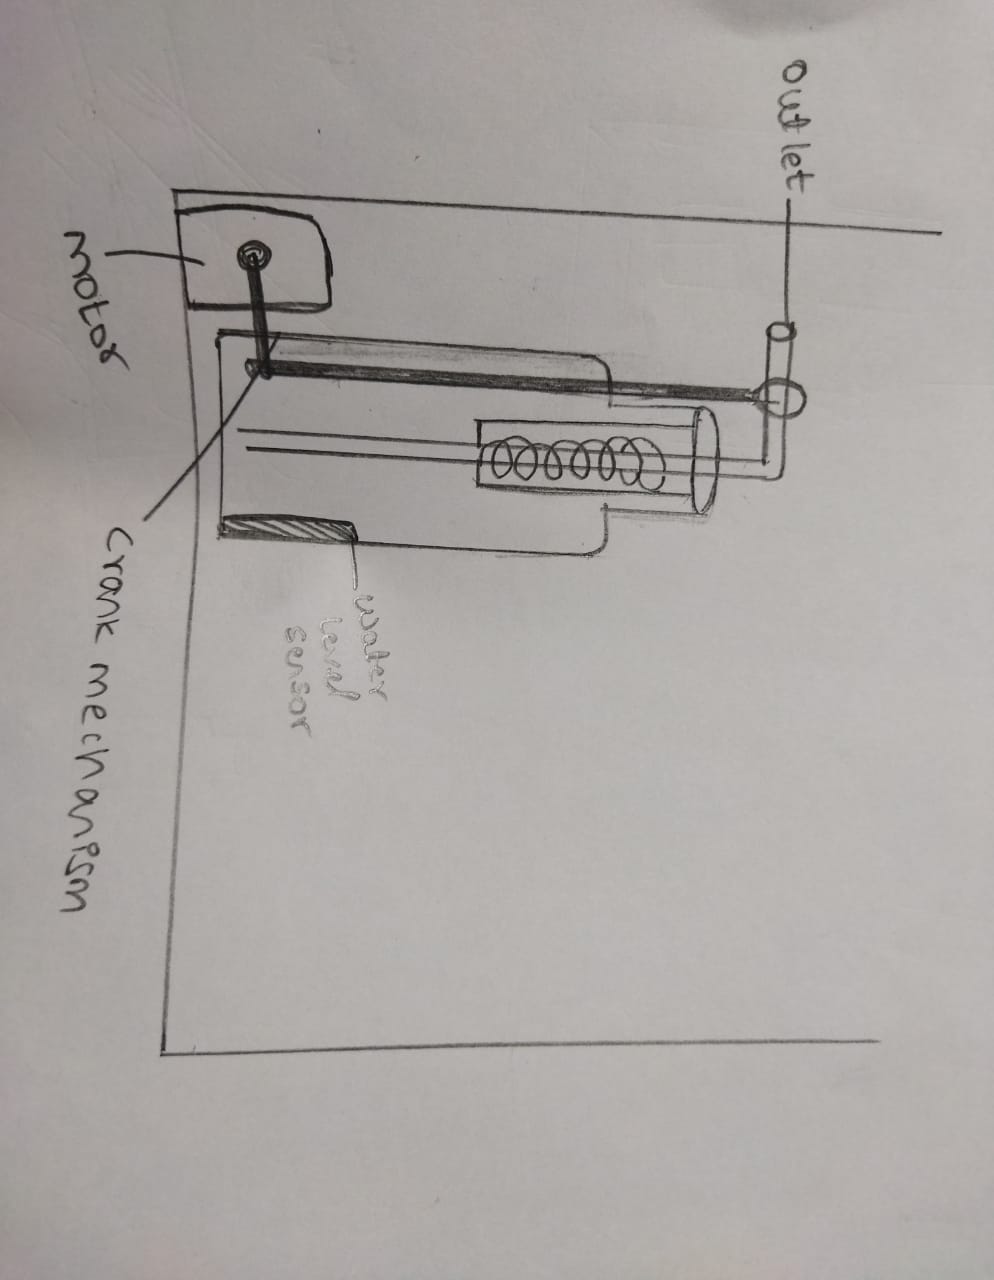 outlet
water
level
sensor
motor
crank mechanism